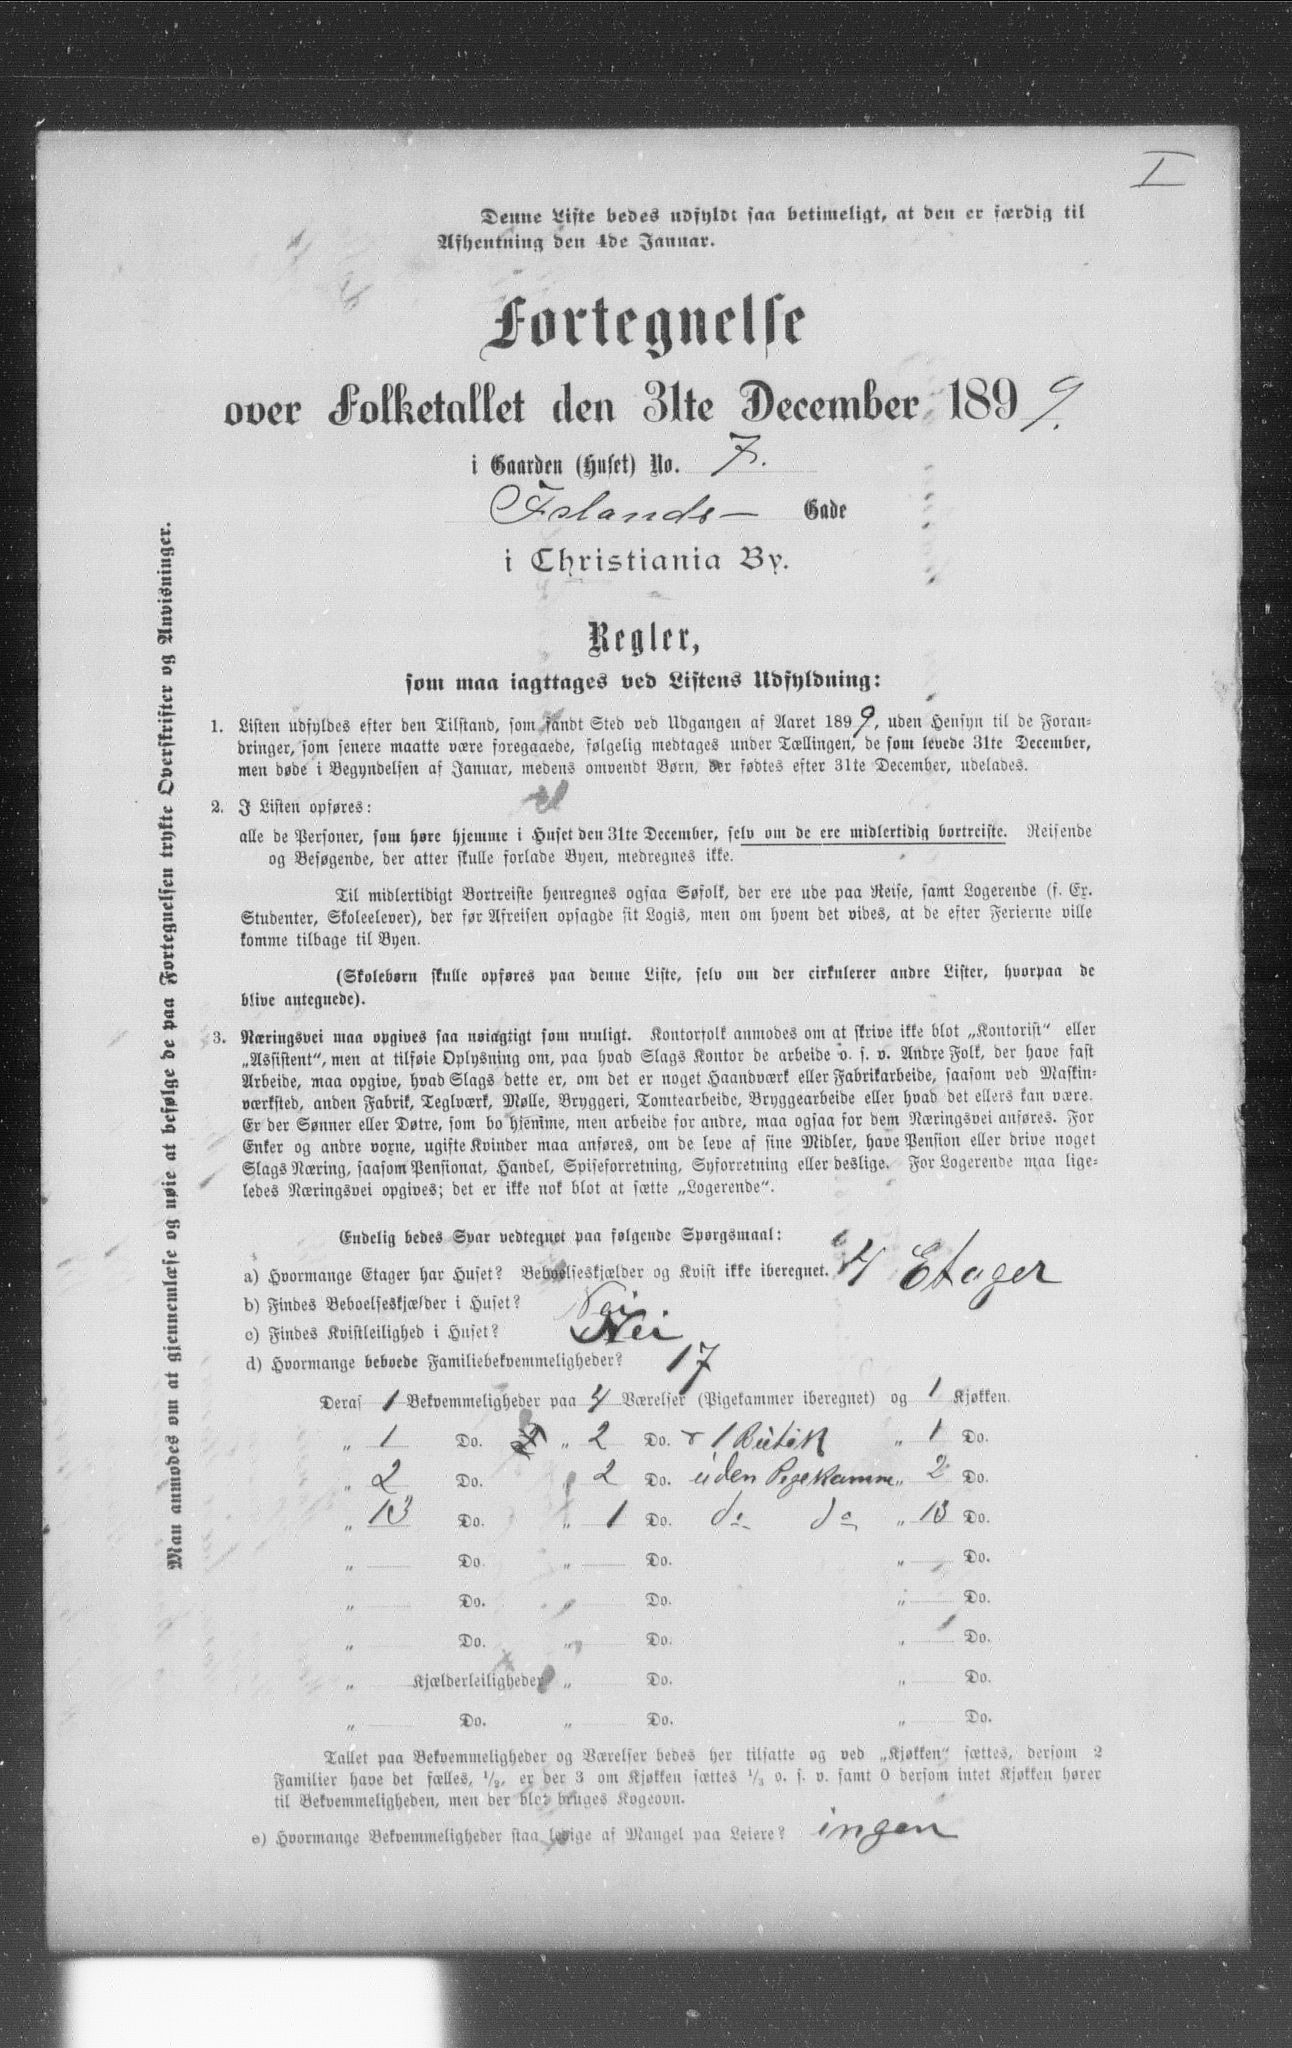 I
Denne Liste bedes udfyldt saa betimeligt, at den er færdig til
Afhentning den 4de Januar.
Fortegnelse
over Folketallet den 31te December 1899.
i Gaarden (Huset) No. 7.
Islands- Gade
i Christiania By.
Regler,
som maa iagttages ved Listens Udfyldning:
1. Listen udfyldes efter den Tilstand, som fandt Sted ved Udgangen af Aaret 1899, uden Hensyn til de Foran-
dringer, som senere maatte være foregaaede, følgelig medtages under Tællingen, de som levede 31te December,
men døde i Begyndelsen af Januar, medens omvendt Børn, der fødtes efter 31te December, udelades.
2. I Listen opføres:
alle de Personer, som høre hjemme i Huset den 31te December, selv om de ere midlertidig bortreiste. Reisende
og Besøgende, der atter skulle forlade Byen, medregnes ikke.
Til midlertidigt Bortreiste henregnes ogsaa Søfolk, der ere ude paa Reise, samt Logerende (f. Ex.
Studenter, Skoleelever), der før Afreisen opsagde sit Logis, men om hvem det vides, at de efter Ferierne ville
komme tilbage til Byen.
(Skolebørn skulle opføres paa denne Liste, selv om der cirkulerer andre Lister, hvorpaa de
blive antegnede).
3. Næringsvei maa opgives saa nøiagtigt som muligt. Kontorfolk anmodes om at skrive ikke blot „Kontorist“ eller
„Assistent“, men at tilføie Oplysning om, paa hvad Slags Kontor de arbeide o. s. v. Andre Folk, der have fast
Arbeide, maa opgive, hvad Slags dette er, om det er noget Haandværk eller Fabrikarbeide, saasom ved Maskin-
værksted, anden Fabrik, Teglværk, Mølle, Bryggeri, Tomtearbeide, Bryggearbeide eller hvad det ellers kan være.
Er der Sønner eller Døtre, som bo hjemme, men arbeide for andre, maa ogsaa for dem Næringsvei anføres. For
Enker og andre voxne, ugifte Kvinder maa anføres, om de leve af sine Midler, have Pension eller drive noget
Slags Næring, saasom Pensionat, Handel, Spiseforretning, Syforretning eller deslige. For Logerende maa lige-
ledes Næringsvei opgives; det er ikke nok blot at sætte „Logerende“.
Endelig bedes Svar vedtegnet paa følgende Spørgsmaal:
a) Hvormange Etager har Huset? Beboelseskjælder og Kvist ikke iberegnet. 4 Etager
b) Findes Beboelseskjælder i Huset? Nei
c) Findes Kvistleilighed i Huset? Nei
d) Hvormange beboede Familiebekvemmeligheder? 17
Deraf 1 Bekvemmeligheder paa 4 Værelser (Pigekammer iberegnet) og 1 Kjøkken.
„ 1 Do. „ 2 Do. 1 Butik „ 1 Do.
„ 2 Do. „ 2 Do. uden Pigekamme „ 2 Do.
„ 13 Do. „ 1 Do. do do „ 13 Do.
„ Do. „ Do. „ Do.
„ Do. „ Do. „ Do.
„ Do. „ Do. „ Do.
„ Kjælderleiligheder „ Do. „ Do.
„ Do. „ Do. „ Do.
Tallet paa Bekvemmeligheder og Værelser bedes her tilsatte og ved „Kjøkken“ sættes, dersom 2
Familier have det fælles, 1/2, er der 3 om Kjøkken sættes 1/3 o. s. v. samt 0 dersom intet Kjøkken hører
til Bekvemmeligheden, men der blot bruges Kogeovn.
e) Hvormange Bekvemmeligheder staa ledige af Mangel paa Leiere? ingen
Man anmodes om at gjennemlæse og nøie at befølge de paa Fortegnelsen trykte Overskrifter og Anvisninger.